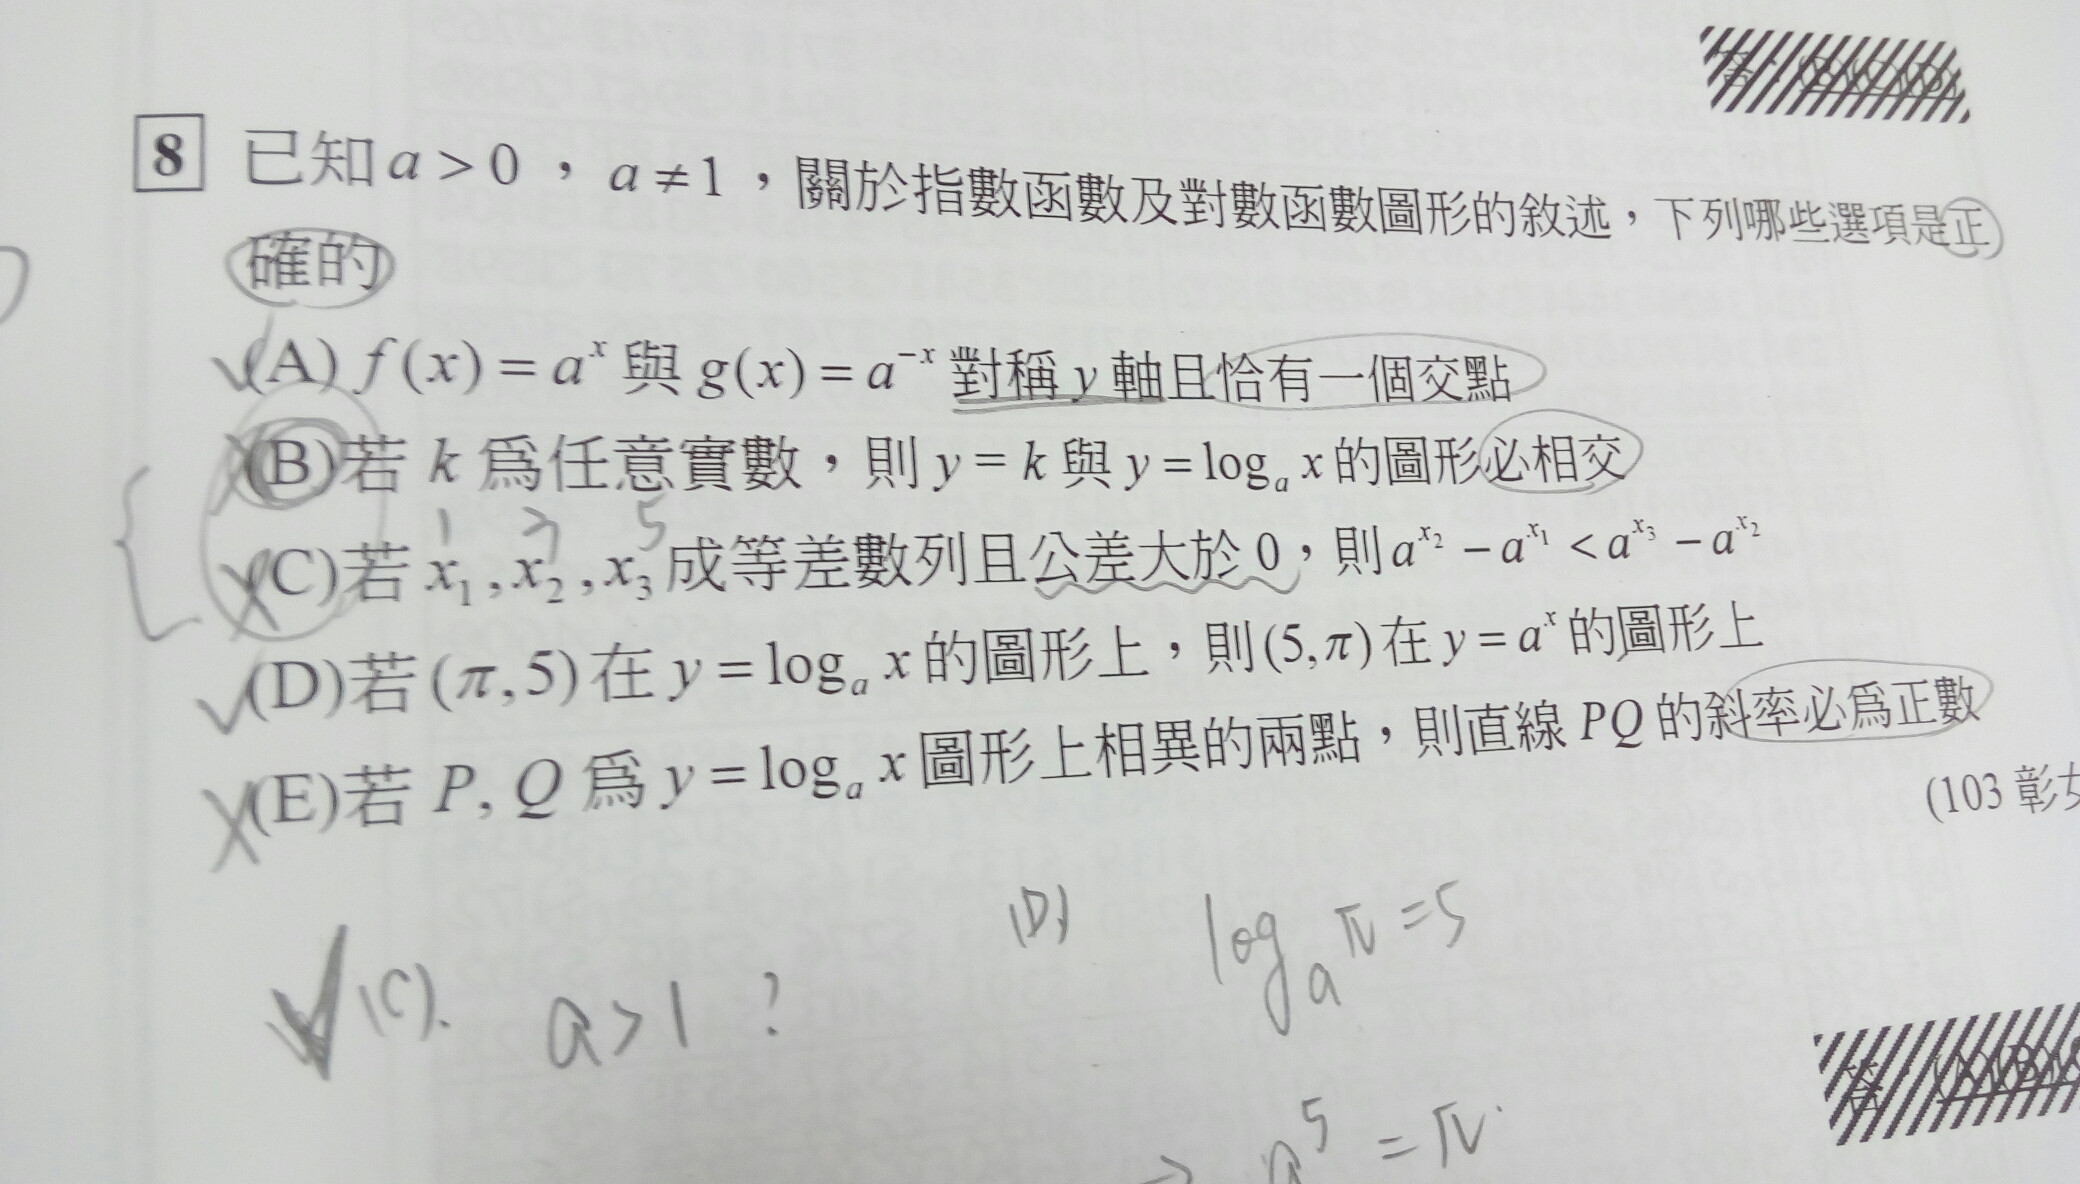 8 已知 a > 0 , a ≠ 1 , 關於指數函數及對數函數圖形的敘述, 下列哪些選項是正
確的
(A) f(x) = a^x 與 g(x) = a^{-x} 對稱 y 軸且恰有一個交點
(B) 若 k 為任意實數, 則 y = k 與 y = log_a x 的圖形必相交
1 3 5
(C) 若 x_1, x_2, x_3 成等差數列且公差大於 0, 則 a^{x_2} − a^{x_1} < a^{x_3} − a^{x_2}
(D) 若 (π,5) 在 y = log_a x 的圖形上, 則 (5,π) 在 y = a^x 的圖形上
(E) 若 P, Q 為 y = log_a x 圖形上相異的兩點, 則直線 PQ 的斜率必為正數
(103 彰女
(D) log_a π = 5
(C). a > 1 ?
→ a^5 = π